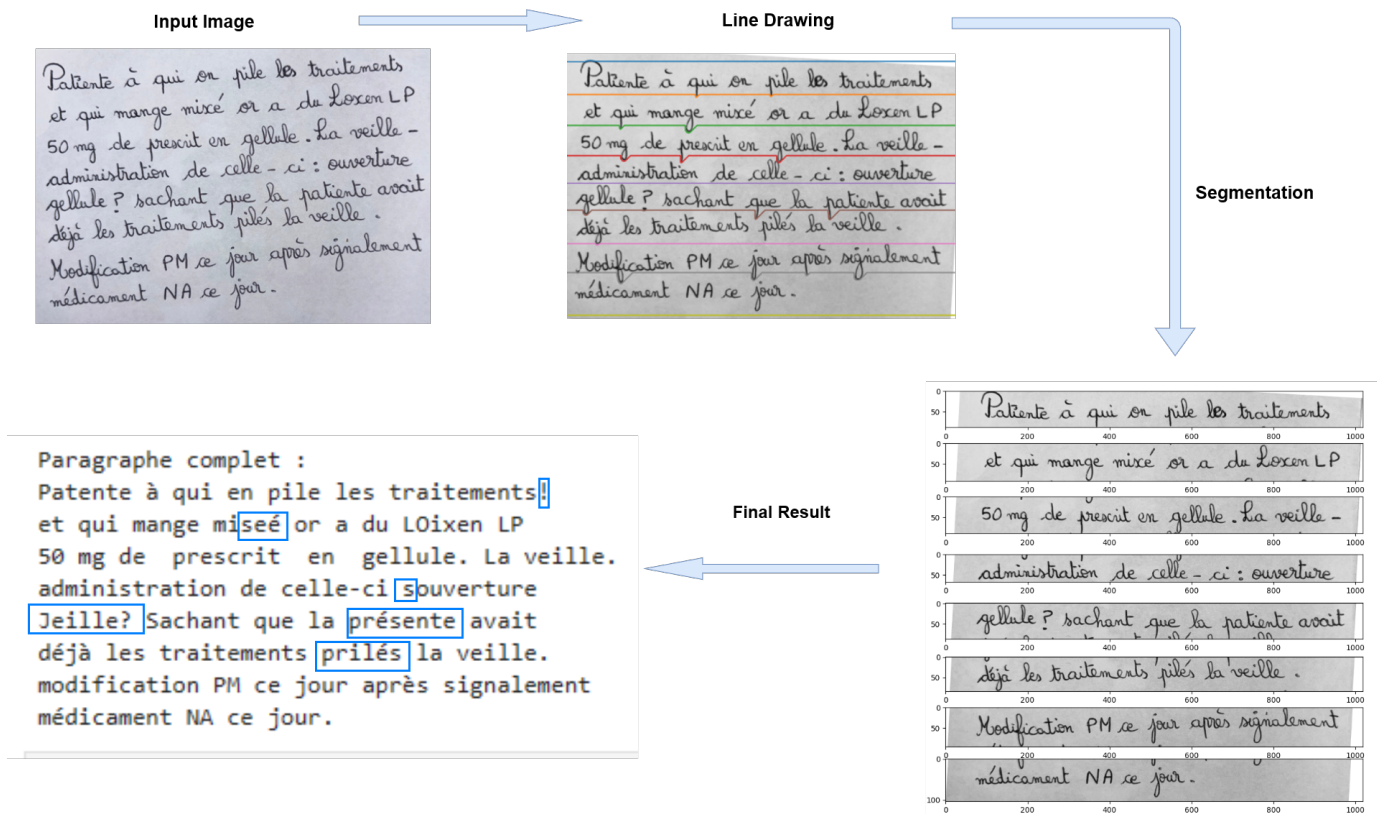 Input Image
Line Drawing
Patiente à qui on pile les traitements
et qui mange mixé or a du Loxen LP
50 mg de prescrit en gellule. La veille -
administration de celle - ci : ouverture
gellule ? sachant que la patiente avait
déjà les traitements pilés la veille .
Modification PM ce jour après signalement
médicament NA ce jour.
Patiente à qui on pile les traitements
et qui mange mixé or a du Loxen LP
50 mg de prescrit en gellule. La veille -
administration de celle - ci : ouverture
gellule ? sachant que la patiente avait
déjà les traitements pilés la veille .
Modification PM ce jour après signalement
médicament NA ce jour.
Segmentation
0
50
Patiente à qui on pile les traitements
0 200 400 600 800 1000
0
50
et qui mange mixé or a du Loxen LP
0 200 400 600 800 1000
0
50
50 mg de prescrit en gellule. La veille -
0 200 400 600 800 1000
0
50
administration de celle - ci : ouverture
0 200 400 600 800 1000
0
50
gellule ? sachant que la patiente avait
0 200 400 600 800 1000
0
50
déjà les traitements pilés la veille .
0 200 400 600 800 1000
0
50
Modification PM ce jour après signalement
0 200 400 600 800 1000
0
100
médicament NA ce jour.
0 200 400 600 800 1000
Final Result
Paragraphe complet :
Patente à qui en pile les traitements!
et qui mange miseé or a du LOixen LP
50 mg de prescrit en gellule. La veille.
administration de celle-ci souverture
Jeille? Sachant que la présente avait
déjà les traitements prilés la veille.
modification PM ce jour après signalement
médicament NA ce jour.